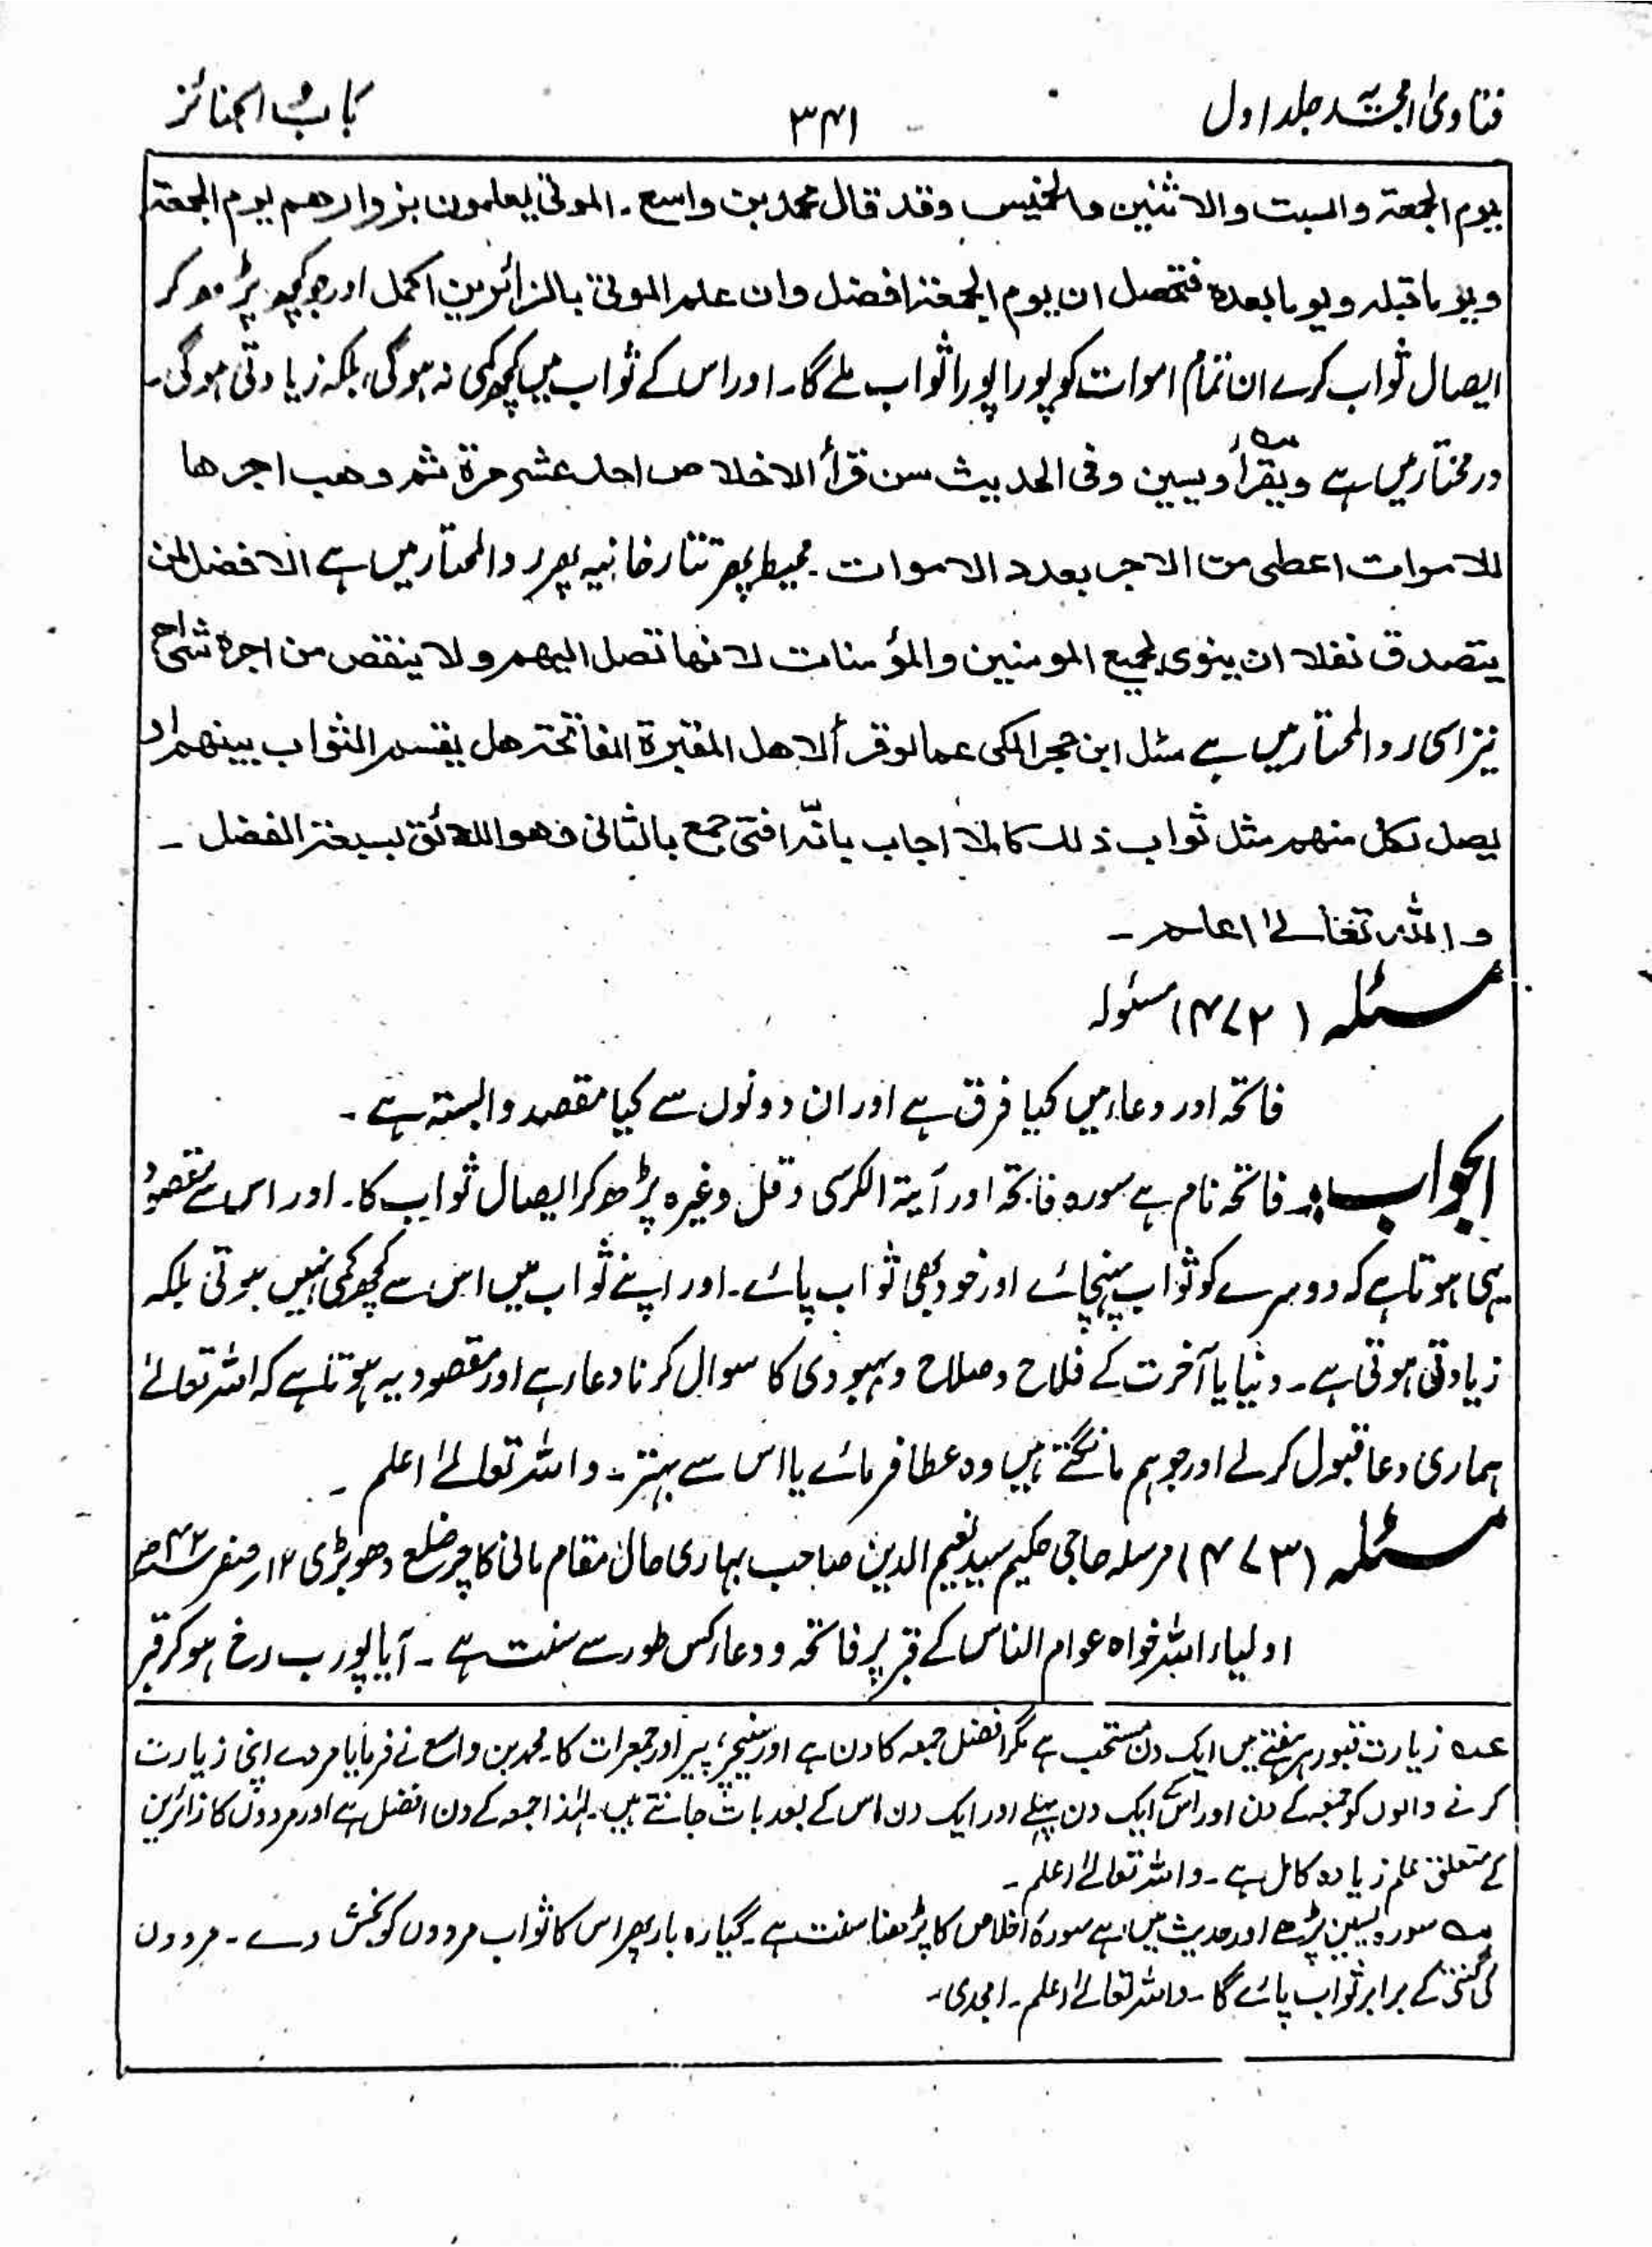 فتاویٰ امجدیہ جلد اول
۳۴۱
کتاب الجنائز
یوم الجمعۃ والسبت والاثنین والخمیس وقد قال محمد بن واسع۔ الموتیٰ یعلمون بزوارھم یوم الجمعۃ
ویوما قبلہ ویوما بعدہ فتحصل ان یوم الجمعۃ افضل وان علم الموتیٰ بالزائرین اکمل اور جو کچھ پڑھ کر
ایصال ثواب کرے ان تمام اموات کو پورا پورا ثواب ملے گا۔ اور اس کے ثواب میں کچھ کمی نہ ہوگی، بلکہ زیادتی ہوگی۔
درمختار میں ہے ویقرأ ویٰسین وفی الحدیث من قرأ الاخلاص احد عشر مرۃ ثم وھب اجرھا
للاموات اعطی من الاجر بعدد الاموات۔ محیط پھر تتارخانیہ پھر ردالمحتار میں ہے الافضل لمن
یتصدق نفلا ان ینوی لجمیع المومنین والمؤمنات لانھا تصل الیھم ولا ینقص من اجرہ شئ اھ
نیز اسی ردالمحتار میں ہے سئل ابن حجر المکی عما لو قرأ لاھل المقبرۃ الفاتحۃ ھل یقسم الثواب بینھم او
یصل لکل منھم مثل ثواب ذلک کاملا اجاب بانّہ افتی جمع بالثانی وھو اللائق بسعۃ الفضل ۔
واللہ تعالےٰ اعلم ۔
مسئلہ (۴۷۲) مسئولہ
فاتحہ اور دعاء میں کیا فرق ہے اور ان دونوں سے کیا مقصد وابستہ ہے ۔
الجواب: فاتحہ نام ہے سورہ فاتحہ اور آیۃ الکرسی و قل وغیرہ پڑھ کر ایصال ثواب کا۔ اور اس سے مقصود
یہی ہوتا ہے کہ دوسرے کو ثواب پہنچائے اور خود بھی ثواب پائے۔ اور اپنے ثواب میں اس سے کچھ کمی نہیں ہوتی بلکہ
زیادتی ہوتی ہے۔ دنیا یا آخرت کے فلاح و صلاح و بہبودی کا سوال کرنا دعاء ہے اور مقصود یہ ہوتا ہے کہ اللہ تعالےٰ
ہماری دعا قبول کرلے اور جو ہم مانگتے ہیں وہ عطا فرمائے یا اس سے بہتر۔ واللہ تعالےٰ اعلم ۔
مسئلہ (۴۷۳) مرسلہ حاجی حکیم سید نعیم الدین صاحب بہاری حال مقام مانی کاچر ضلع دھوبڑی ۱۲ر صفر ۴۲ھ
اولیاء اللہ خواہ عوام الناس کے قبر پر فاتحہ و دعاء کس طور سے سنت ہے ۔ آیا پورب رخ ہو کر قبر
عہ زیارت قبور ہر ہفتے میں ایک دن مستحب ہے مگر افضل جمعہ کا دن ہے اور سنیچر، پیر اور جمعرات کا۔ محمد بن واسع نے فرمایا مردے اپنی زیارت
کرنے والوں کو جمعہ کے دن اور اس ایک دن پہلے اور ایک دن اس کے بعد بات جانتے ہیں۔ لہٰذا جمعہ کے دن افضل ہے اور مردوں کا زائرین
کے متعلق علم زیادہ کامل ہے۔ واللہ تعالےٰ اعلم ۔
سورہ یٰسین پڑھے اور حدیث میں ہے سورۂ اخلاص کا پڑھنا سنت ہے۔ گیارہ بار پھر اس کا ثواب مردوں کو بخش دے ۔ مردوں
کی گنتی کے برابر ثواب پائے گا ۔ واللہ تعالےٰ اعلم۔ امجدی ۔